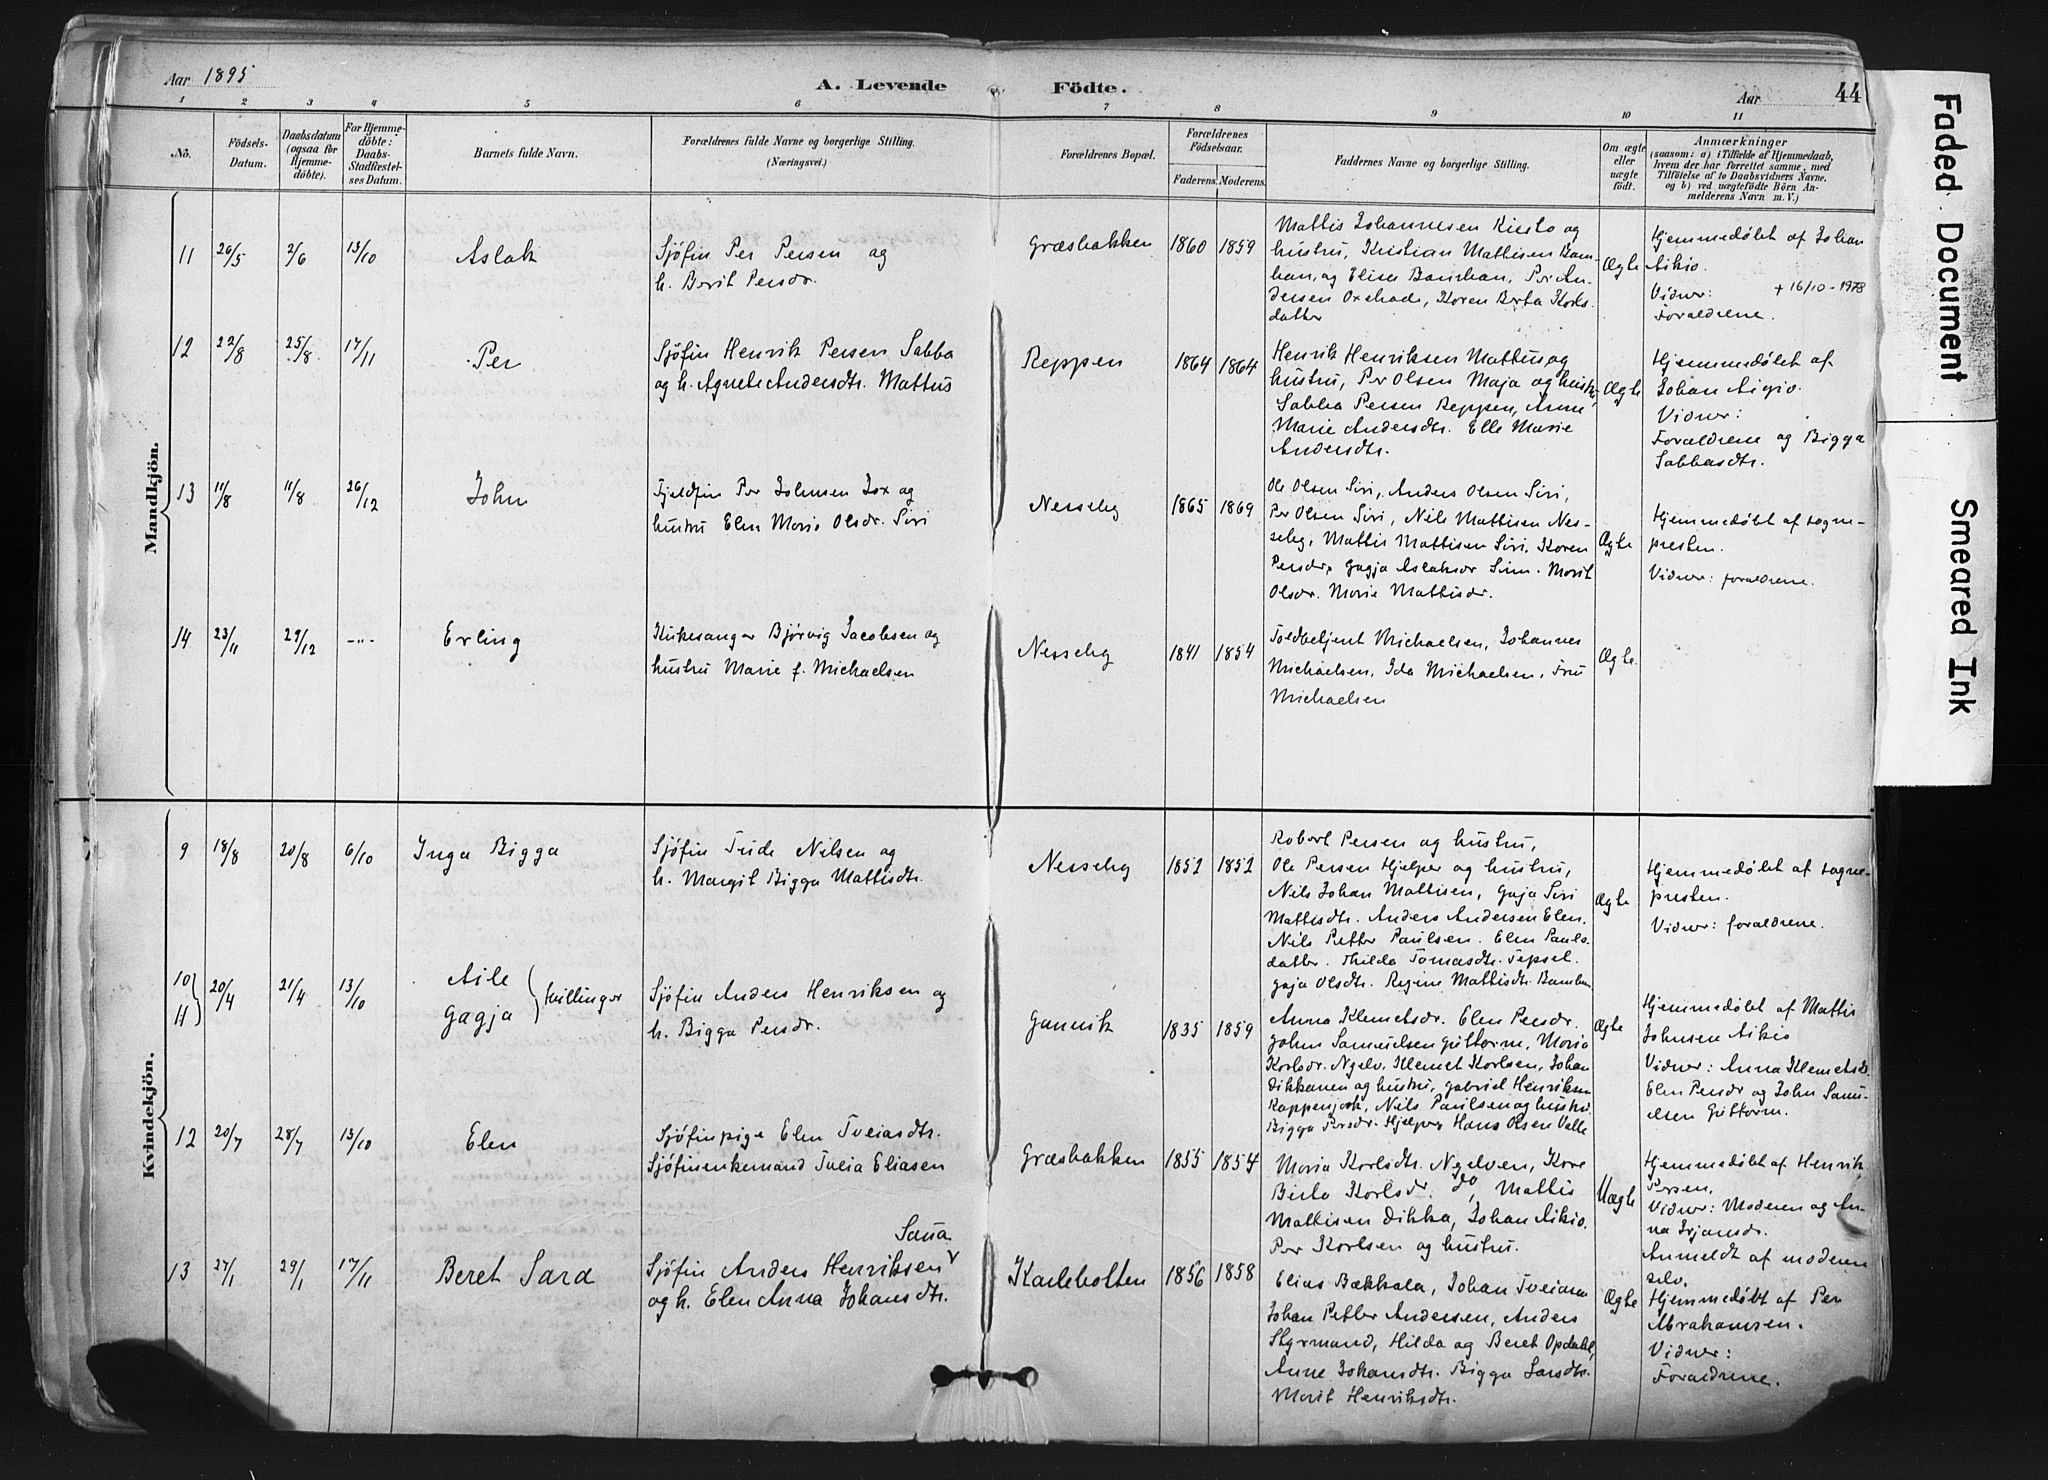 Aar 1895
A. Levende Födte.
Aar
44
1 2 3 4 5 6 7 8 9 10 11
No.
Födsels-Datum.
Daabsdatum (ogsaa for Hjemmedöbte).
For Hjemmedöbte: Daabs-Stadfestelses Datum.
Barnets fulde Navn.
Forældrenes fulde Navne og borgerlige Stilling.
(Næringsvei.)
Forældrenes Bopæl.
Forældrenes Födselsaar.
Faderens. Moderens.
Faddernes Navne og borgerlige Stilling.
Om ægte eller uægte födt.
Anmærkninger
(saasom: a) i Tilfælde af Hjemmedaab, hvem der har forrettet samme, med Tilföielse af to Daabsvidners Navne, og b) ved uægtefödte Börn Anmelderens Navn m. V.)
Mandkjön.
11 26/5 2/6 13/10 Aslak
Sjöfin Per Persen og
h. Berit Persdr.
Græsbakken 1860 1859
Mattis Johannesen Riesto og
hustru, Kristian Mattisen Bam-
han, og Elisa Bamhan, Per An-
dersen Oxehade, Karen Berta Karls-
datter
Ægte
Hjemmedøbt af Johan
Aikio.
Vidner: + 16/10-1978
Forældrene.
12 22/8 25/8 17/11 Per
Sjöfin Henrik Persen Sabba
og h. Agnete Andersdtr. Mattus
Reppen 1864 1864
Henrik Henriksen Mattus og
hustru, Per Olsen Maja og hustr.
Sabba Persen Reppen, Anne
Marie Andersdtr. Elle Marie
Andersdtr.
Ægte
Hjemmedøbt af
Johan Aigio.
Vidner:
Forældrene og Bigga
Sabbasdtr.
13 11/8 11/8 26/12 John
Fjeldfin Per Johnsen Jox og
hustru Elen Maria Olsdr. Siri
Nesseby 1865 1869
Ole Olsen Siri, Anders Olsen Siri,
Per Olsen Siri, Nils Mattisen Nes-
seby, Mattis Mattisen Siri, Karen
Persdr, Gagja Aslaksdr Siri. Marit
Olsdr. Marie Mattisdr.
Ægte
Hjemmedøbt af sogne-
presten.
Vidner: forældrene.
14 23/11 29/12 -"- Erling
Kirkesanger Bjørvig Jacobsen og
hustru Marie f. Michaelsen
Nesseby 1841 1854
Toldbetjent Michaelsen, Johannes
Michaelsen, Ida Michaelsen, Fru
Michaelsen
Ægte.
Kvindekjön.
9 18/8 20/8 6/10 Inga Bigga
Sjöfin Trude Nilsen og
h. Margit Bigga Mattisdtr.
Nesseby 1852 1852
Robert Persen og hustru,
Ole Persen Hjelper og hustru,
Nils Johan Mattisen, Gaja Siri
Mattisdtr. Anders Andersen Elen.
Nils Petter Paulsen. Elen Pauls-
datter. Hilda Tomasdtr.
Gaja Olsdtr. Regine Mattisdtr.
Ægte
Hjemmedøbt af sogne-
presten.
Vidner: forældrene.
10 11 20/4 21/4 13/10 Aile
Gagja
tvillinger
Sjöfin Anders Henriksen og
h. Bigga Persdr.
Gannvik 1835 1859
Anna Klemetsdr. Elen Persdr.
John Samuelsen Guttorm, Maria
Karlsdr. Nyelv, Klemet Karlsen, Johan
Dikkanen og hustru, Gabriel Henriksen
Reppenjok, Nils Paulsen og hustru.
Bigga Persdr. Hjelper, Hans Olsen Valle
Ægte
Hjemmedøbt af Mattis
Johnsen Aikio
Vidner: Anna Klemetsdr.
Elen Persdr og John Samu-
elsen Guttorm.
12 20/7 28/7 13/10 Elen
Sjöfinpige Elen Tveiasdtr.
Sjöfinenkemand Tveia Eliasen
Græsbakken 1855 1854
Maria Karlsdtr. Nyelven, Kare
Birta Karlsdr. do, Mattis
Mattisen Dikka, Johan Aikio.
Per Karlsen og hustru.
Uægte
Hjemmedøbt af Henrik
Persen.
Vidner: Moderen og An-
na
Anmeldt af moderen
selv.
13 27/1 29/1 17/11 Beret Sara
Saua
Sjöfin Anders Henriksen
og h. Elen Anna Johansdtr.
Karlebotten 1856 1858
Elias Bækkala, Johan Tveiasen
Johan Petter Andersen, Anders
Styrmand, Hilda og Beret Opdahl,
Anne Johansdtr. Bigga Larsdtr.
Marit Henriksdtr.
Ægte
Hjemmedøbt af Per
Abrahamsen.
Vidner:
Forældrene.
Faded Document
Smeared Ink